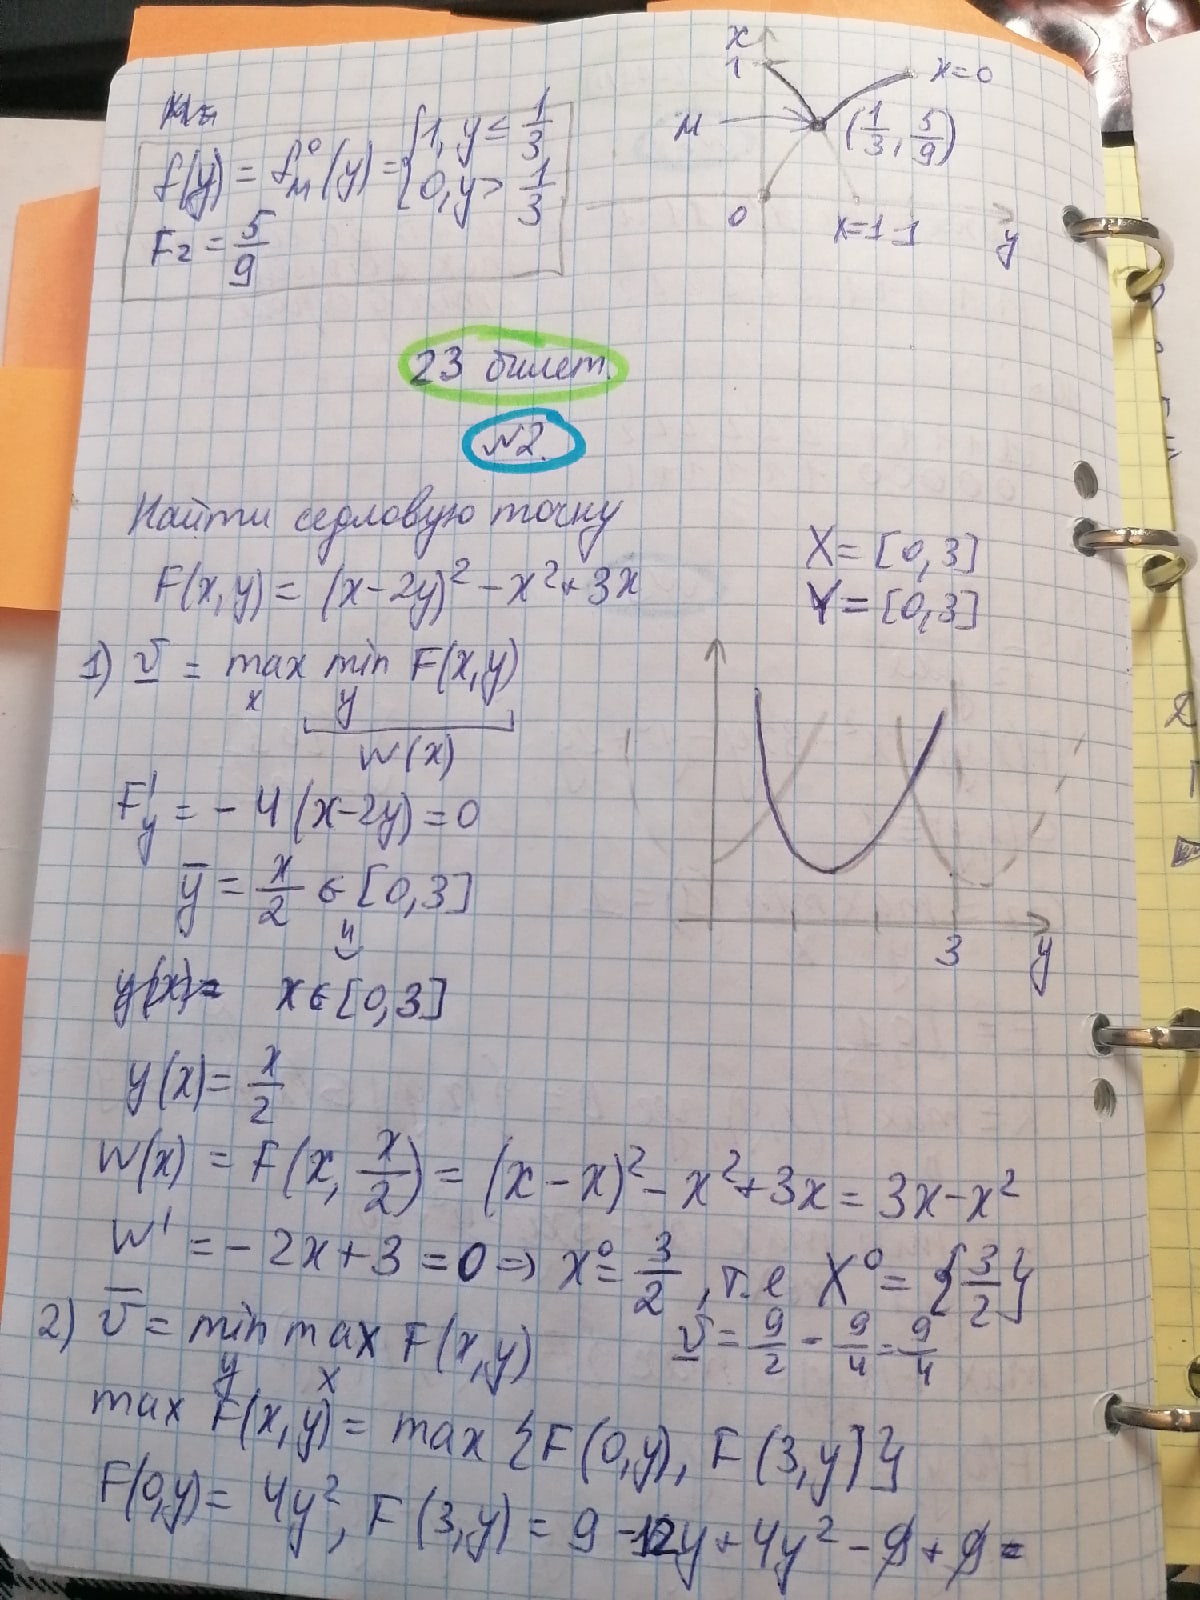 f(y) = f⁰_м(y) = {1, y ≤ 1/3
{0, y > 1/3
F₂ = 5/9
x
1
x=0
м
(1/3, 5/9)
0
x=1
1
y
23 билет
№2.
Найти седловую точку
F(x,y) = (x-2y)² - x² + 3x
X = [0,3]
Y = [0,3]
1) v̲ = max min F(x,y)
x y
W(x)
F'y = -4(x-2y) = 0
ȳ = x/2 ∈ [0,3]
3 y
y(x)= x ∈ [0,3]
y(x) = x/2
W(x) = F(x, x/2) = (x-x)² - x² + 3x = 3x - x²
W' = -2x+3 = 0 => x⁰ = 3/2, т.е X⁰ = {3/2}
v̲ = 9/2 - 9/4 = 9/4
2) v̅ = min max F(x,y)
y x
max F(x,y) = max {F(0,y), F(3,y)}
F(0,y) = 4y², F(3,y) = 9 - 12y + 4y² - 9 + 9 =